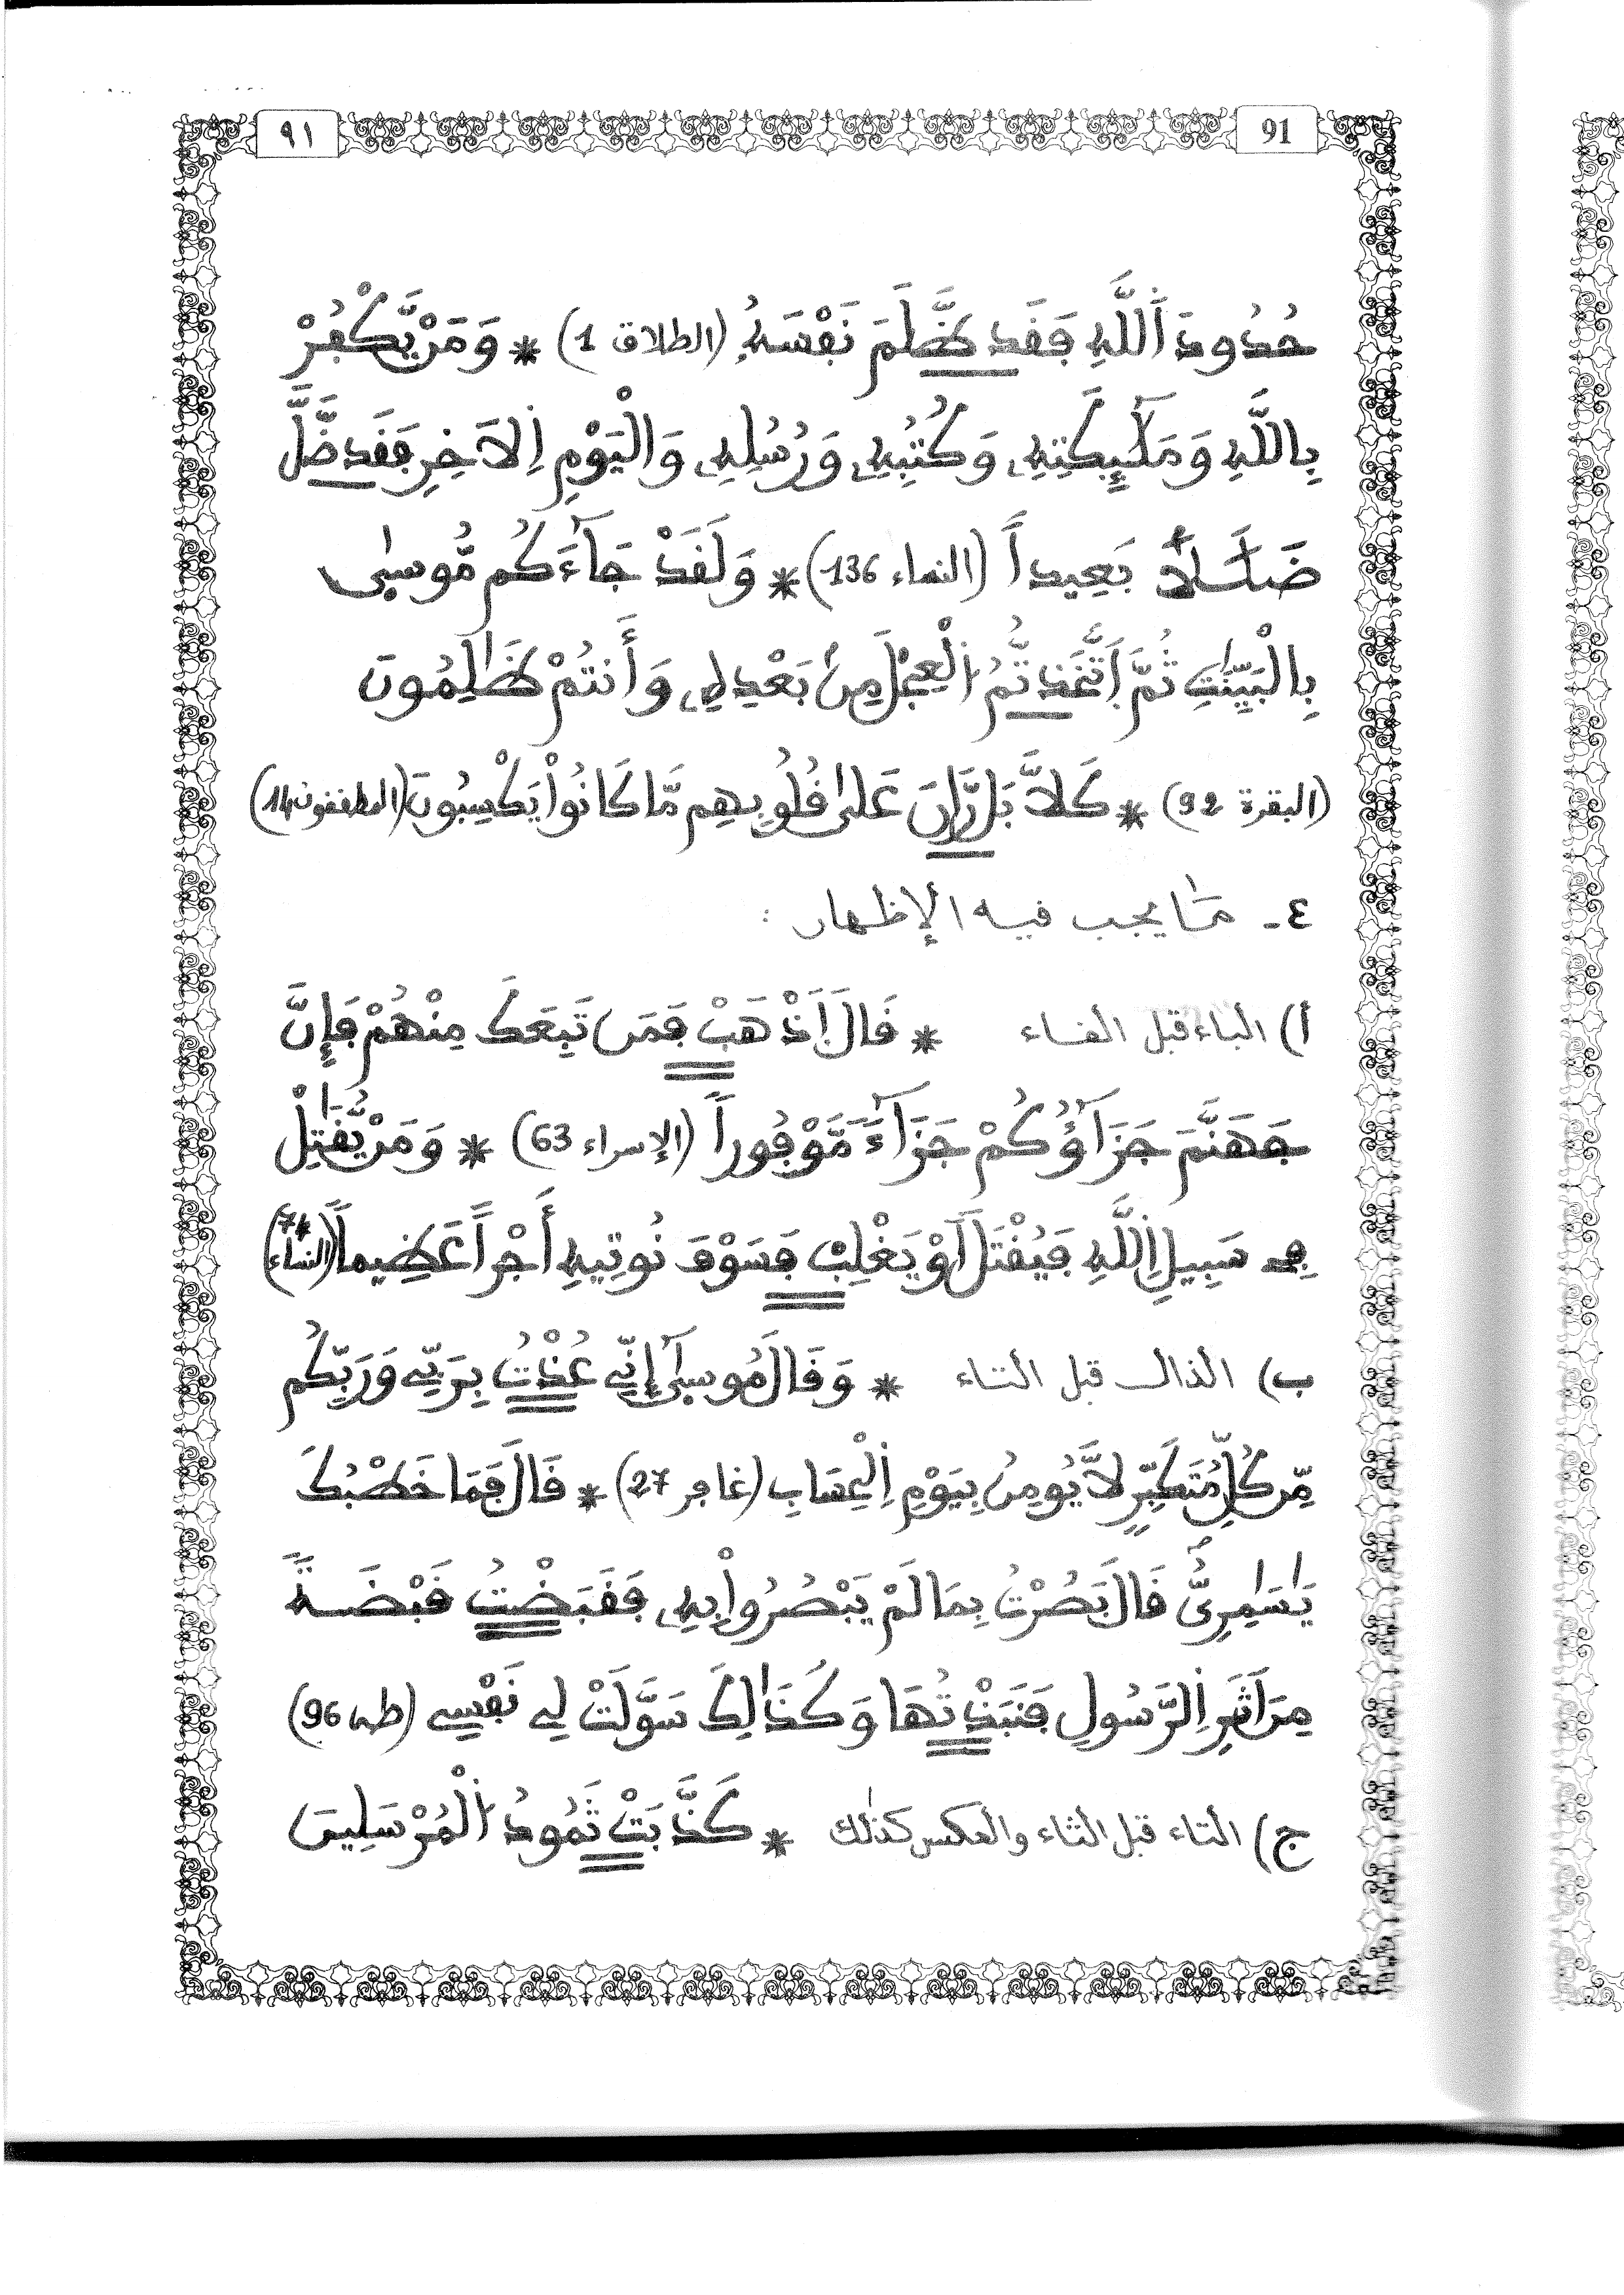 ٩١
91
حُدُودَ اَ۬للَّهِ فَقَد ظَّلَمَ نَفْسَهُۥ (الطلاق 1) * وَمَنْ يَّكْفُرْ
بِاللَّهِ وَمَلَٰٓئِكَتِهِۦ وَكُتُبِهِۦ وَرُسُلِهِۦ وَالْيَوْمِ اِ۬لَاخِرِ فَقَد ضَّلَّ
ضَلَٰلاَۢ بَعِيداً (النساء 136) * وَلَقَدْ جَآءَكُم مُّوسۭىٰ
بِالْبَيِّنَٰتِ ثُمَّ اَتَّخَذتُّمُ اُ۬لْعِجْلَ مِنۢ بَعْدِهِۦ وَأَنتُمْ ظَٰلِمُونَ
(البقرة 92) * كَلاَّ بَل رَّانَ عَلَىٰ قُلُوبِهِم مَّا كَانُواْ يَكْسِبُونَ (المطففون 14)
٤- ما يجب فيه الإظهار :
أ) الباء قبل الفاء * قَالَ اَ۪ذْهَبْ فَمَن تَبِعَكَ مِنْهُمْ فَإِنَّ
جَهَنَّمَ جَزَآؤُكُمْ جَزَآءً مَّوْفُوراً (الإسراء 63) * وَمَنْ يُّقَٰتِلْ
فِے سَبِيلِ اِ۬للَّهِ فَيُقْتَلَ اَوْ يَغْلِبْ فَسَوْفَ نُوتِيهِ أَجْراً عَظِيماً (النساء 74)
ب) الذال قبل التاء * وَقَالَ مُوسۭىٰٓ إِنِّے عُذْتُ بِرَبِّے وَرَبِّكُم
مِّن كُلِّ مُتَكَبِّرٍ لاَّ يُومِنُ بِيَوْمِ اِ۬لْحِسَابِ (غافر 27) * قَالَ فَمَا خَطْبُكَ
يَٰسَٰمِرِيُّ قَالَ بَصُرْتُ بِمَا لَمْ يَبْصُرُواْ بِهِۦ فَقَبَضْتُ قَبْضَةً
مِّنَ اَثَرِ اِ۬لرَّسُولِ فَنَبَذْتُهَا وَكَذَٰلِكَ سَوَّلَتْ لِے نَفْسِے (طه 96)
ج) التاء قبل الثاء والعكس كذلك * كَذَّبَتْ ثَمُودُ اُ۬لْمُرْسَلِينَ